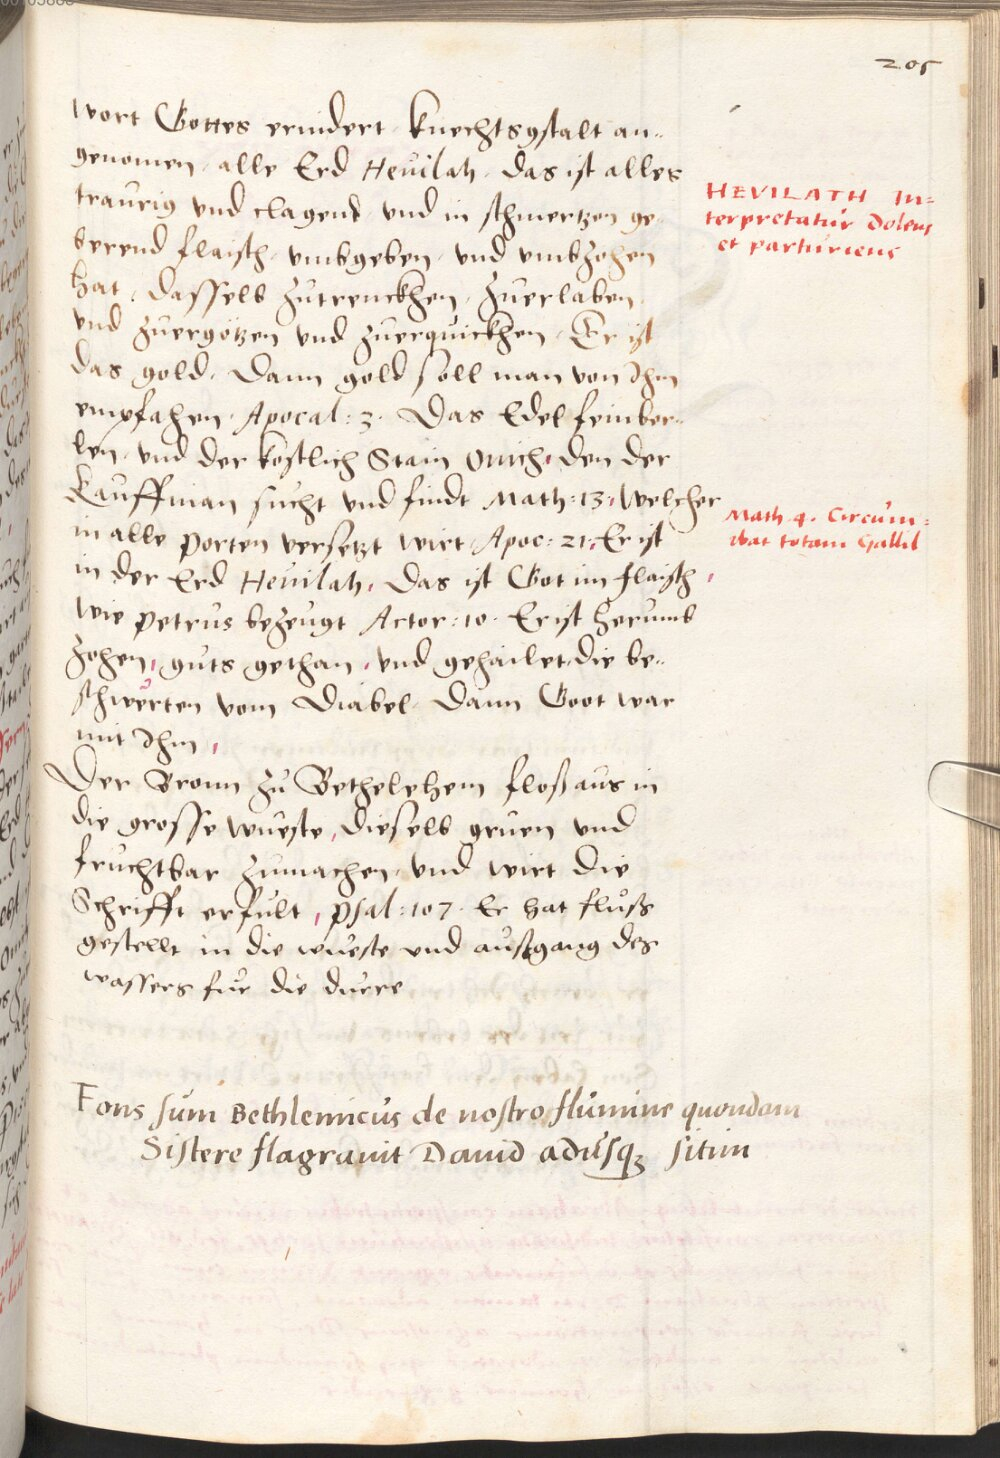 205
wort Gottes ernidert knechtsgstalt an=
genomen, alle Erd Hevilah, das ist alles
traurig und clagend und in schmertzen ge
berend flaisch, umbgeben, und umbzohen
hat, dasselb zutrenckhen, zuerlaben,
und zuergötzen und zuerquickhen, Er ist
das gold, Dann gold soll man von Ihm
empfahen, Apocal: 3. Das Edel fein ber=
len, und der kostlich Stain Onich, den der
Kauffman sucht und findt Math: 13, welcher
in alle porten versetzt wirt, Apoc: 21. Er ist
in der Erd Hevilah, das ist Got im flaisch,
wie Petrus bezeugt Actor: 10. Er ist herumb
zohen, guts gethan, und gehailet, die be=
schwerten vom Diabel, Dann Goot war
mit Ihm,
Der Bronn zu Bethelehem floß aus in
die grosse wueste, dieselb gruen und
fruchtbar zumachen, und wirt die
Schrifft erfult, Psal: 107. Er hat fluß
gestellt in die wueste und außgang des
wassers fur die duerre
HEVILATH In=
terpretatur Dolens
et parturiens
Math. 4. Circum=
ibat totam Gallil
Fons sum Bethlemicus de nostro flumine quondam
Sistere flagravit David adusq; sitim